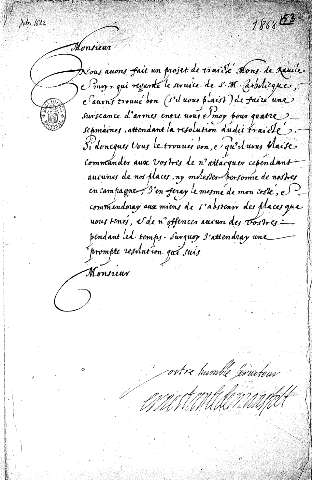 1866
Monsieur
Nous avons fait un projet de traicté Mons. de
et moy, qui regarde le service de S. M. Catholique,
et avons trouvé bon (s'il vous plaist) de faire une
surceance d'armes entre vous et moy pour quatre
sepmaines, attendant la resolution dudit traicté.
Si doncques vous le trouvés bon, et qu'il vous plaise
commander aux vostres de n'attaquer cependant
aucunes de nos places, ny molester personne de nostres
en campagne, J'en feray le mesme de mon costé, et
commanderay aux miens de s'abstenir des places que
vous tenés, et de n'offencer aucun des vostres
pendant led. temps. Surquoy J'attendray une
prompte resolution qui suis
Monsieur
vostre humble serviteur